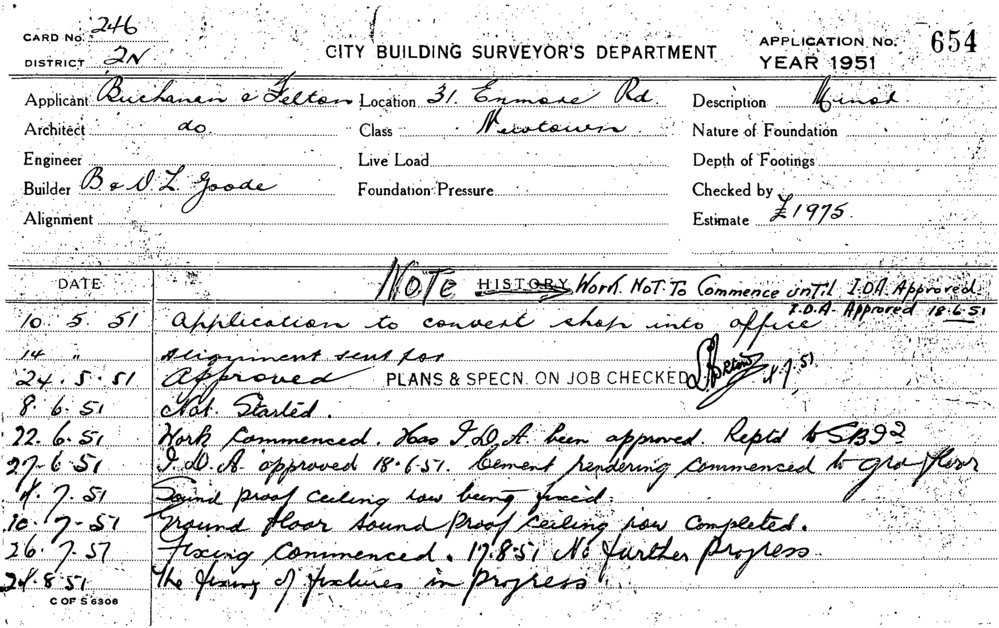 CARD No. 246
DISTRICT 2N
CITY BUILDING SURVEYOR'S DEPARTMENT
APPLICATION No. 654
YEAR 1951
Applicant Buchanan & Felton Location 31. Enmore Rd. Description Minor
Architect do. Class Newtown. Nature of Foundation
Engineer Live Load Depth of Footings
Builder B & V L Goode Foundation Pressure Checked by
Alignment Estimate £1975.
DATE NOTE HISTORY Work Not To Commence until I.D.A. Approved.
I.D.A. Approved 18.6.51
10. 5. 51 Application to convert shop into office
14 " Alignment sent for
24. 5. 51 Approved PLANS & SPECN. ON JOB CHECKED 7. 51
8. 6. 51 Not Started.
22. 6. 51 Work Commenced. Has I.D.A. been approved. Reptd to
27-6.51 I.D.A. approved 18.6.51. Cement rendering commenced to gro floor
7. 51 Sound proof ceiling now being fixed.
10. 7-51 Ground floor sound proof ceiling now completed.
26. 7. 51 Fixing commenced. 17.8.51 No further Progress.
8. 51 The fixing of fixtures in progress.
C OF S 6306